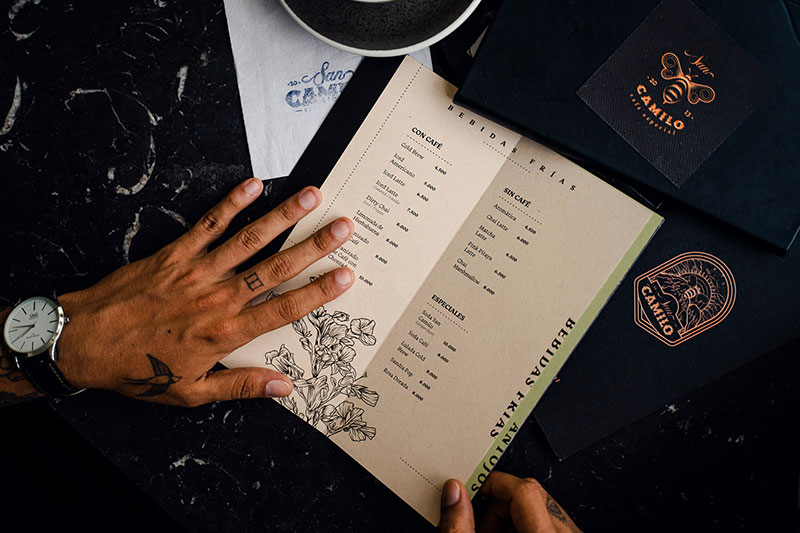 San
CAMILO
BEBIDAS FRÍAS
CON CAFÉ
Cold Brew 6.500
Iced
Americano 5.000
Iced Latte 6.500
Iced Latte
Dirty Chai 7.500
Limonada de
Hierbabuena 6.000
Café
Café con
10.000
SIN CAFÉ
Aromática 6.500
Chai Latte 5.000
Matcha
Latte
Pink Pitaya
Latte 6.500
Chai
Marshmallow 8.000
ESPECIALES
Soda San
Camilo 10.000
Soda Café 8.000
Lulada Cold
Brew 8.000
Sandía Pop 8.000
Rosa Dorada 8.000
BEBIDAS FRÍAS
ANTOJOS
San
20 13
CAMILO
café especial
San
CAMILO